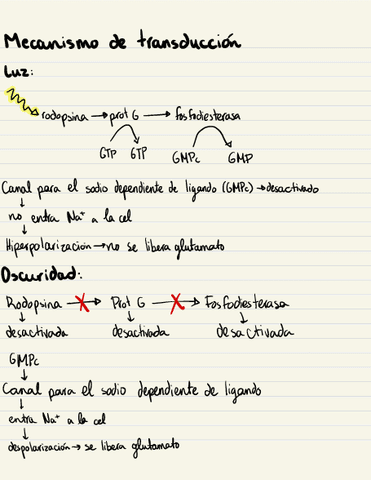 Mecanismo de transducción
Luz:
rodopsina → prot G → fosfodiesterasa
GTP GTP GMPc GMP
Canal para el sodio dependiente de ligando (GMPc) → desactivado
↓
no entra Na⁺ a la cel
↓
Hiperpolarización → no se libera glutamato
Oscuridad:
Rodopsina → Prot G → Fosfodiesterasa
↓ ↓ ↓
desactivada desactivada desactivada
GMPc
↓
Canal para el sodio dependiente de ligando
↓
entra Na⁺ a la cel
↓
despolarización → se libera glutamato